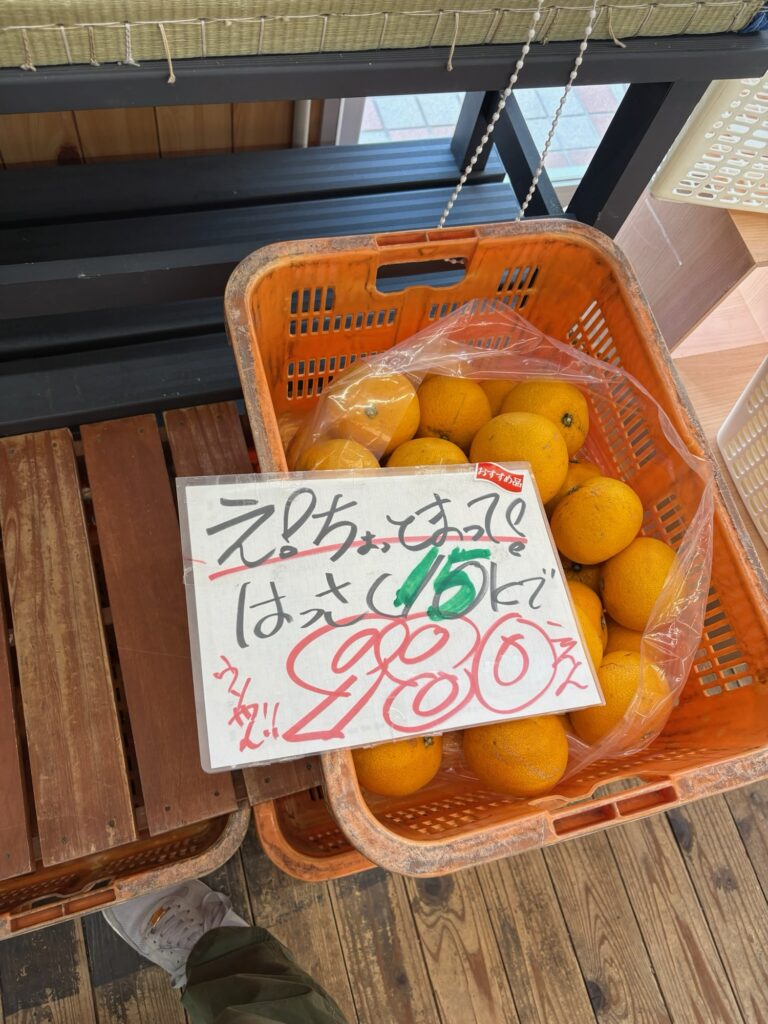 おすすめ品
え!ちょっとまって!
はっさく15kで
980えん
うそやん!!